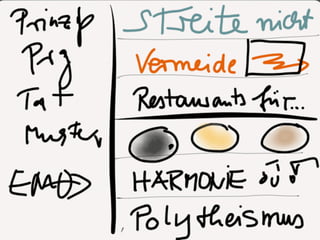 Prinzip
STREITE nicht
Prz
Vermeide
Tat
Restaurants für...
Muster
HARMONIE
Polytheismus